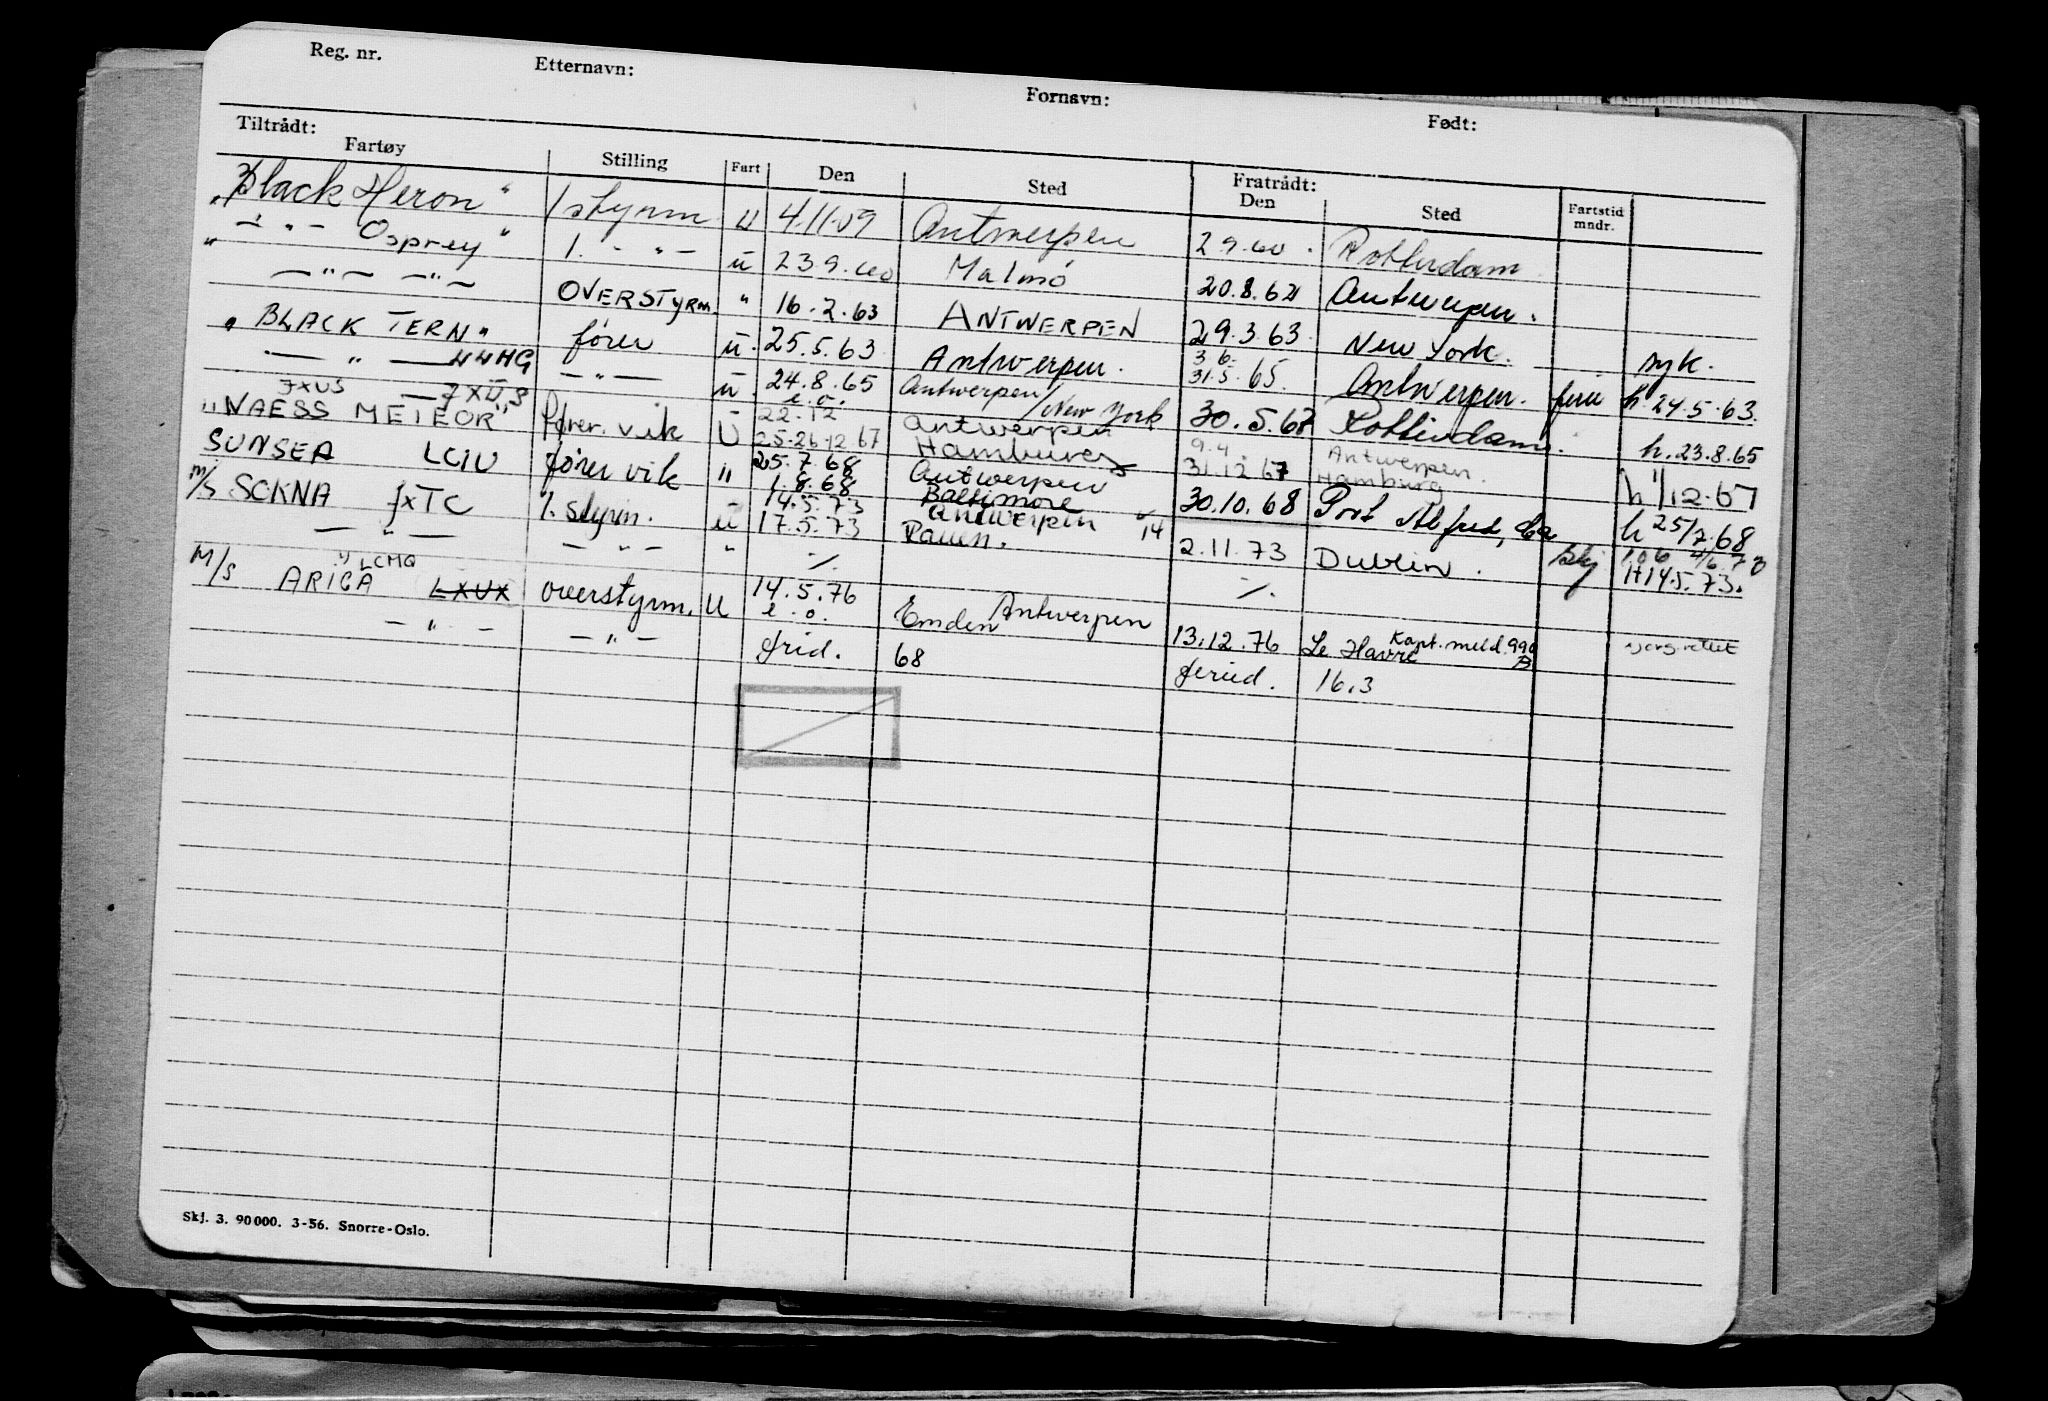 Reg. nr. Etternavn: Fornavn: Født:
Tiltrådt: Fratrådt:
Fartøy Stilling Fart Den Sted Den Sted Fartstid mndr.
"Black Heron" 1 styrm U 4.11.59 Antwerpen 2.9.60. Rotterdam.
" — " — Osprey" 1. - " - ü 23.9.60 Malmö 20.8.62 Antwerpen.
— " — — " — OVERSTYRM. " 16.2.63 ANTWERPEN 29.3.63 New York. syk.
"BLACK TERN" fører ü. 25.5.63 Antwerpen. 3.6. 31.5.65. Antwerpen. ferie h. 24.5.63.
— " — 44HG — " — ü. 24.8.65 Antwerpen/New York 30.5.67 Rotterdam. h. 23.8.65
JXUS — JXÜS e.o.
"NAESS METEOR" fører. vik Ü 22.12 25-26.12.67 Antwerpen Hamburg 9.4. 31.12.67 Antwerpen. Hamburg h 1/12.67
SUNSEA LCIU fører vik " 25.7.68 1.8.68 Antwerpen Baltimore 30.10.68 Port Alfred, Ca h 25/7.68
M/S SOKNA JXTC 1. styrm. ü 14.5.73 17.5.73 Antwerpen 14 2.11.73 Dublin. 4/6.73 H14.5.73.
— " — — " — " ./. ./.
M/S ARICA 1) LCMQ LXUX overstyrm. U 14.5.76 Emden Antwerpen 13.12.76 Le Havre Kapt. meld. 990
— " — — " — e.o.
frid. 68 feried. 16.3
Skj. 3. 90 000. 3-56. Snorre-Oslo.